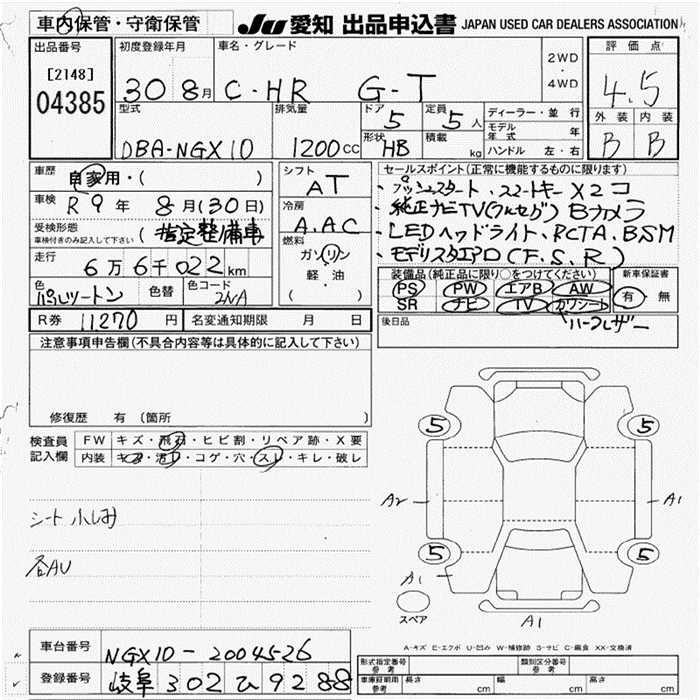 車内保管・守衛保管
JU 愛知 出品申込書 JAPAN USED CAR DEALERS ASSOCIATION
出品番号
[2148]
04385
初度登録年月
30 8月
車名・グレード
C-HR G-T
2WD
・
4WD
評価点
4.5
外装 内装
B B
型式
DBA-NGX10
排気量
1200cc
ドア
5
定員
5人
形状
HB
積載
kg
ディーラー・並行
モデル年式 年
ハンドル 左・右
車歴
自家用・( )
車検 R9年 8月(30日)
受検形態
車検付きのみ記入して下さい
(指定整備車)
走行
6万6千022km
色
パールツートン
色替
色コード
2NA
シフト
AT
冷房
A.AC
燃料
ガソリン
軽・油
( )
セールスポイント(正常に機能するものに限ります)
・プッシュスタート、スマートキーX2コ
・純正ナビTV(フルセグ)Bカメラ
・LEDヘッドライト、RCTA、BSM
・モデリスタエアロ(F.S.R)
装備品(純正品に限り○をつけてください)
PS PW エアB AW
SR ナビ TV カワシート
新車保証書
有・無
後日品
ハーフレザー
R券 11270円
名変通知期限 月 日
注意事項申告欄(不具合内容等は具体的に記入して下さい)
修復歴 有(箇所
検査員記入欄
FW キズ・飛石・ヒビ割・リペア跡・X要
内装 キズ・汚れ・コゲ・穴・スレ・キレ・破レ
シート 小しみ
各AU
5 5
A2 A1
5 5
A1
スペア
A1
A-キズ E-エクボ U-凹み W-補修跡 S-サビ C-腐食 XX-交換済
車台番号
NGX10-2004526
登録番号
岐阜 302 ひ 9288
形式指定番号
参考
類別区分番号
参考
車庫証明用
参考
長さ cm
幅 cm
高さ cm